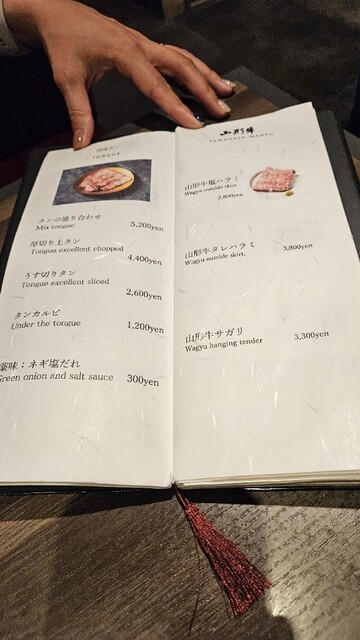 国産タン
TONGUE
タンの盛り合わせ
Mix tongue
5,200yen
厚切り上タン
Tongue excellent chopped
4,400yen
うす切りタン
Tongue excellent sliced
2,600yen
タンカルビ
Under the tongue
1,200yen
薬味：ネギ塩だれ
Green onion and salt sauce 300yen
山形牛
YAMAGATA WAGYU
山形牛塩ハラミ
Wagyu outside skirt
3,800yen
山形牛タレハラミ
Wagyu outside skirt.
3,800yen
山形牛サガリ
Wagyu hanging tender
3,300yen